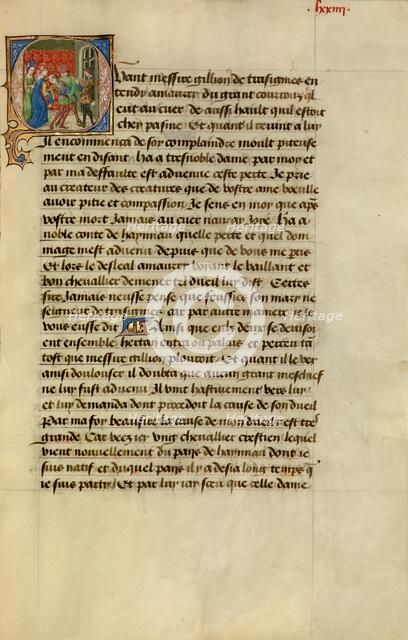 lxxiiii
Quant messire gillion de trasignies en
tendy amaury du grant courroux ql
eut au cuer de aussi hault quil estoit
chey pasme Et quant il revint a luy
Il encommenca de soy complaindre moult piteuse
ment en disant ha a tresnoble dame par moy et
par ma deffaulte est advenue ceste perte Je prie
au createur des creatures que de vostre ame vueille
avoir pitie et compassion Je sens en moy que apres
vostre mort Jamais au cuer nauray Joye Ha a
noble conte de haynnau quelle perte et quel dom
mage mest advenu depuis que de vous me partis
Et lors le desleal amaury voyant le vaillant et
bon chevallier demener tel dueil luy dist Certes
sire Jamais neusse pense que feussies son mary ne
seigneur de trasignies car par autre maniere le
vous eusse dit Ainsi que eulx deux se devisoi
ent ensemble hertan entra ou palais et perceu tan
tost que messire gillion plouroit Et quant il le vey
ainsi doulouser il doubta que aucun grant meschief
ne luy fust advenu Il vint hastivement vers luy
et luy demanda dont procedoit la cause de son dueil
Par ma foy beaufire la cause de mon dueil est tres
grande Car veez icy ung chevallier crestien lequel
vient nouvellement du pays de haynnau dont ie
suis natif et duquel pays il y a desia long temps q
ie suis party Et par luy iay sceu que celle dame
heritage images